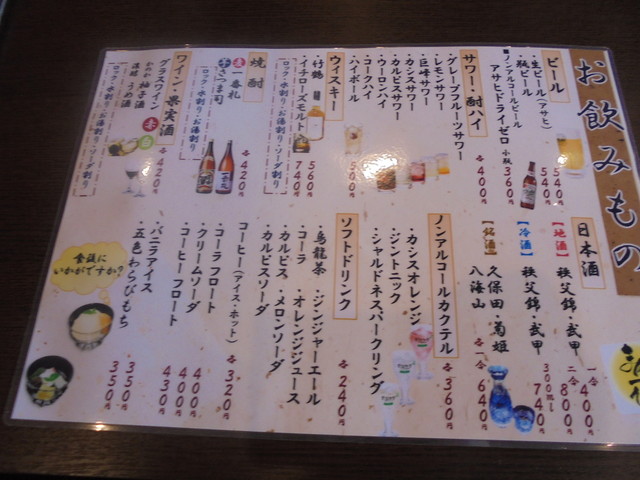 お飲みもの
ビール
・生ビール(アサヒ) 540円
・瓶ビール 540円
■ノンアルコールビール
アサヒドライゼロ 小瓶 360円
サワー・酎ハイ
・グレープフルーツサワー
・レモンサワー
・巨峰サワー
・カシスサワー
・カルピスサワー
・ウーロンハイ
・コークハイ
各400円
・ハイボール 500円
ウィスキー
・竹鶴 560円
・イチローズモルト 740円
ロック・水割り・お湯割り・ソーダ割り
焼酎
麦 一番札
芋 さつま司
各420円
ロック・水割り・お湯割り
ワイン・果実酒
グラスワイン 赤 白
柚子酒
うめ酒
各420円
ロック・水割り・お湯割り・ソーダ割り
日本酒
【地酒】 秩父錦・武甲 一合 400円
二合 800円
【冷酒】 秩父錦・武甲 300ml 740円
【銘酒】 久保田・菊姫
八海山
各一合 640円
ノンアルコールカクテル
・カシスオレンジ
・ジントニック
・シャルドネスパークリング
各360円
ソフトドリンク
・烏龍茶 ・ジンジャーエール
・コーラ ・オレンジジュース
・カルピス ・メロンソーダ
・カルピスソーダ
各240円
・コーヒー(アイス・ホット) 各320円
・コーラフロート 400円
・クリームソーダ 400円
・コーヒーフロート 430円
・バニラアイス 350円
・五色わらびもち 350円
食後に
いかがですか?